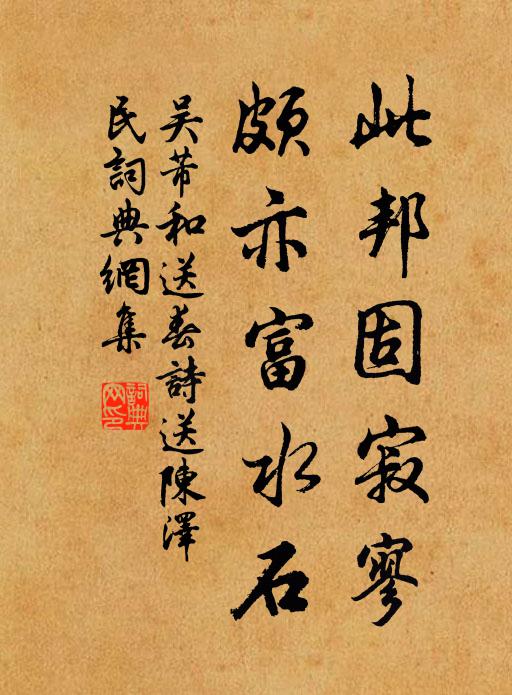 此邦固寂寥
頗亦富水石
吴芾和送春詩送陳澤
民詞典網集